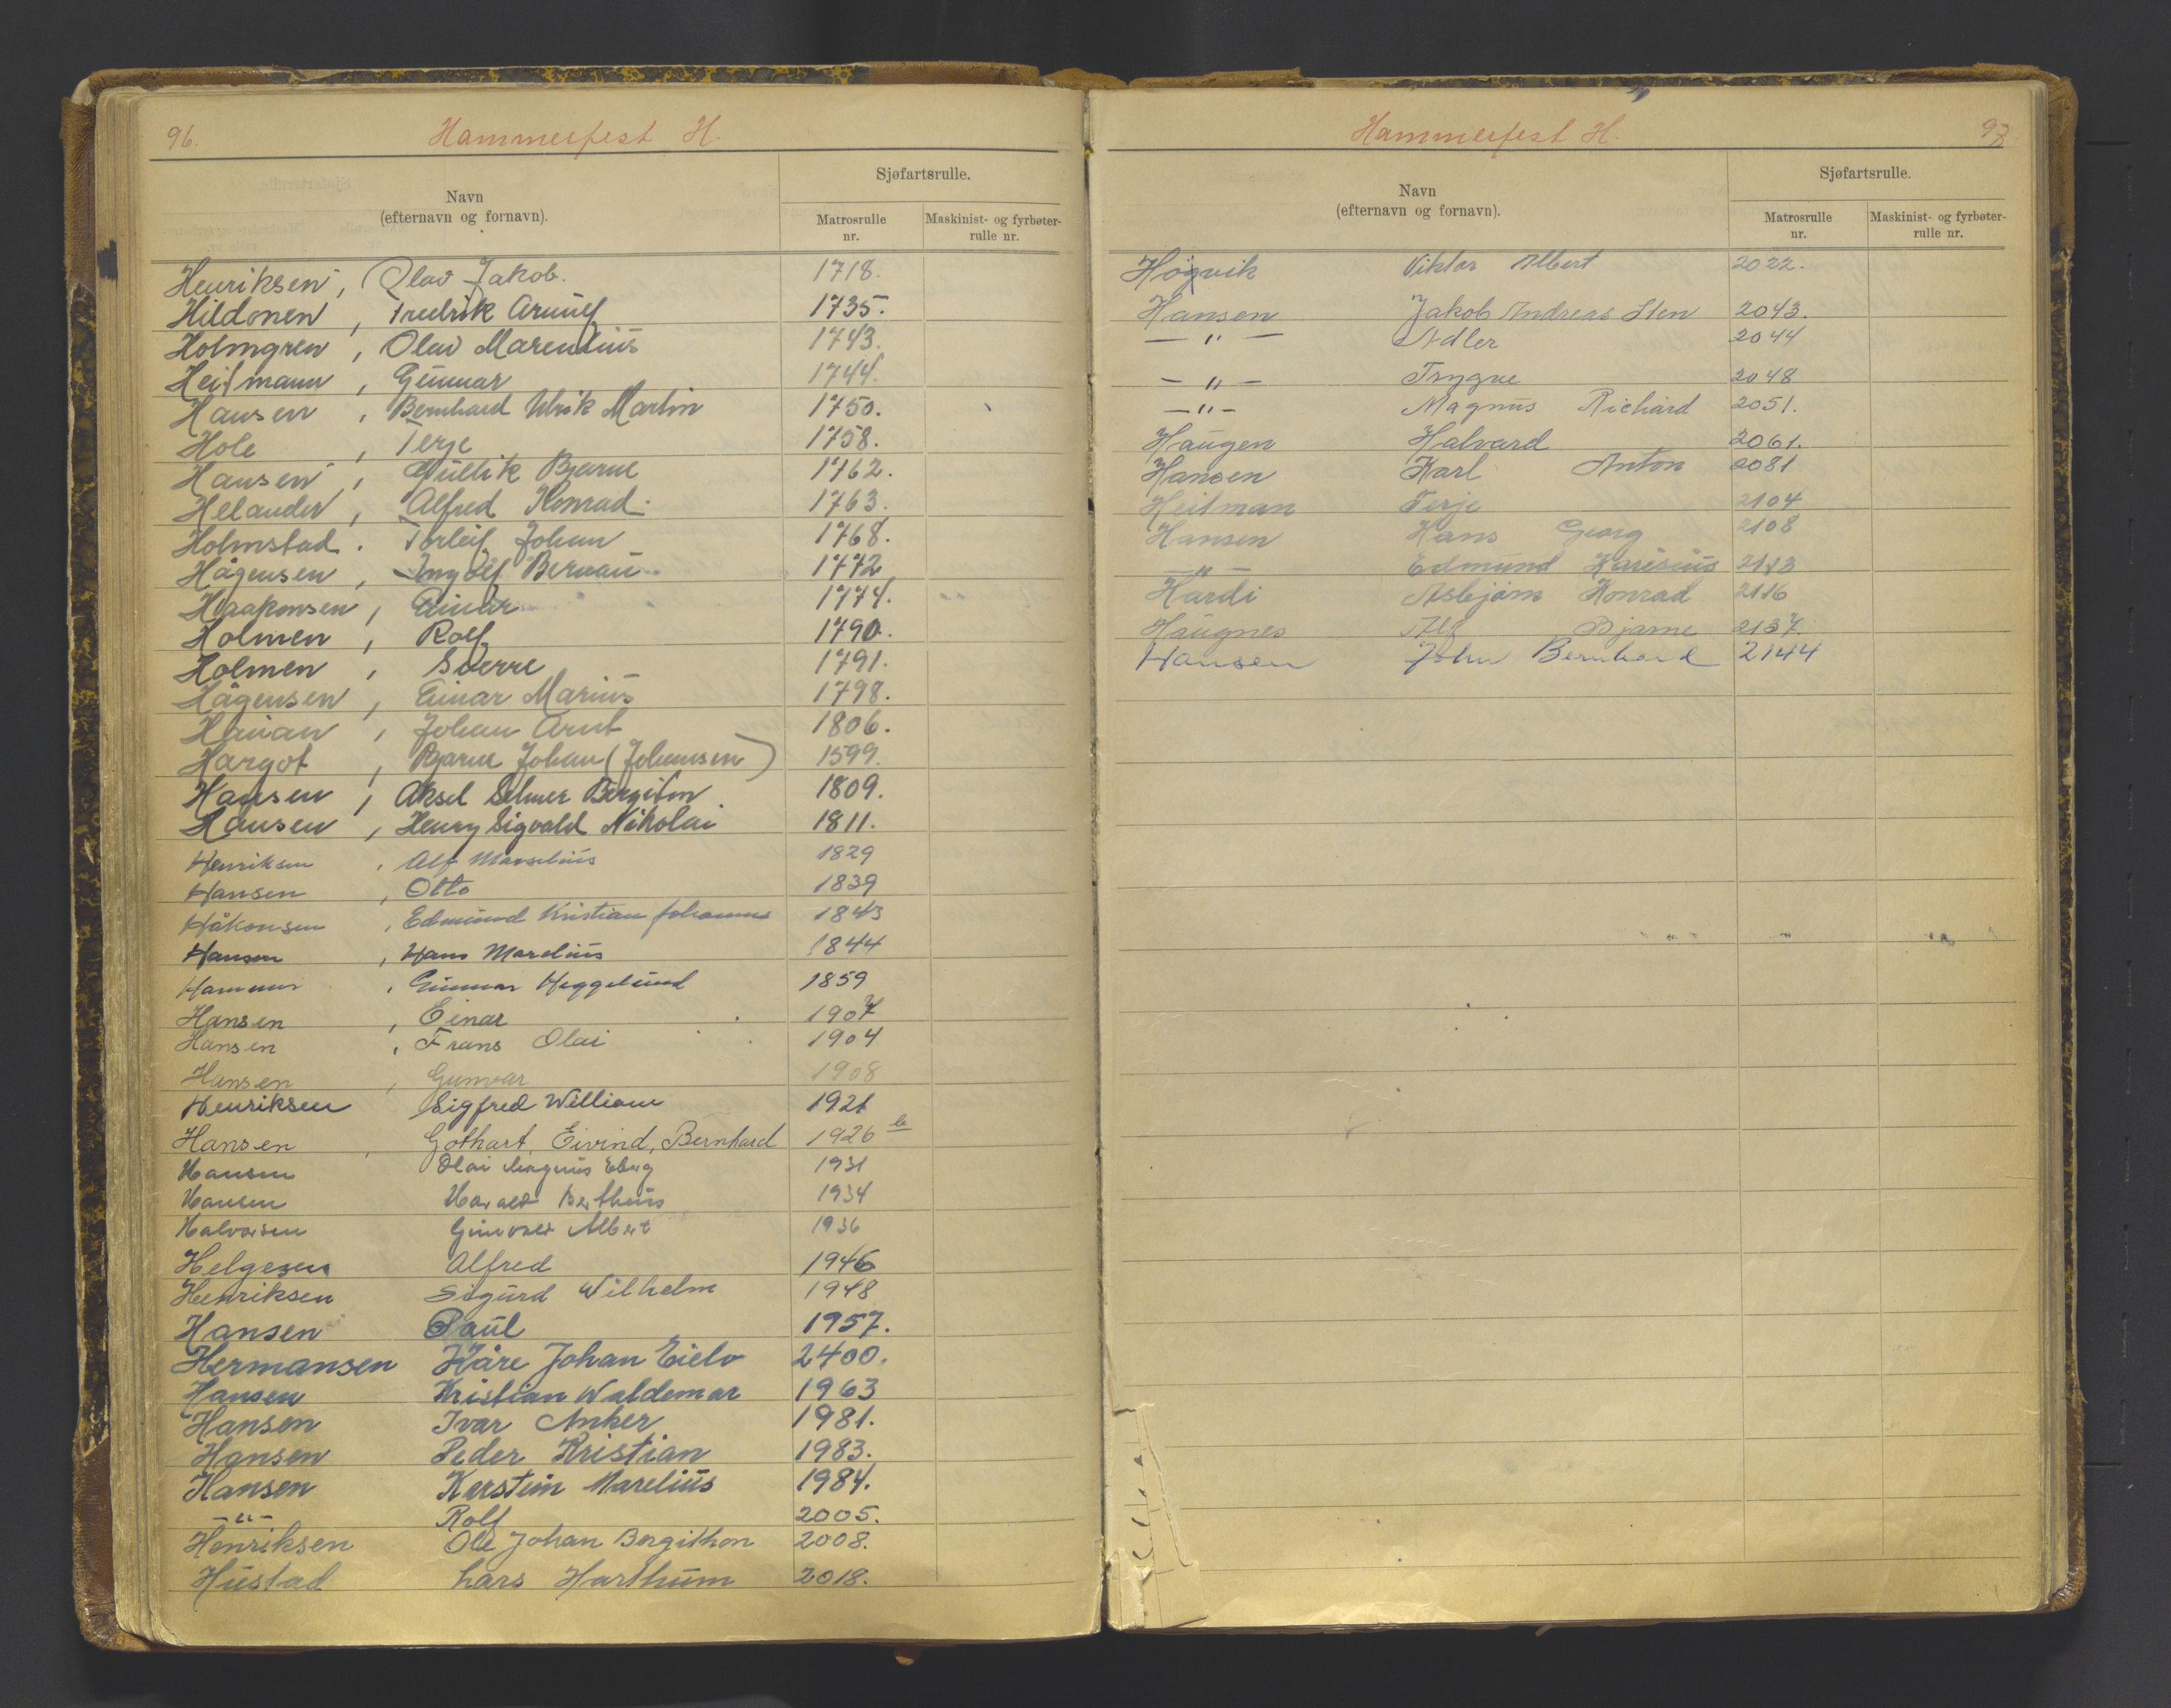 96.
Hammerfest H.
Navn
(efternavn og fornavn).
Sjøfartsrulle.
Matrosrulle nr.
Maskinist- og fyrbøter-rulle nr.
Henriksen, Olav Jakob. 1718.
Hildonen, Fredrik Arnulf 1735.
Holmgren, Olav Marentius 1743.
Heitmann, Gunnar 1744.
Hansen, Bernhard Ulrik Martin 1750.
Hole, Terje 1758.
Hansen, Gullik Bjarne 1762.
Helander, Alfred Konrad. 1763.
Holmstad. Torleif Johan 1768.
Hågensen, Ingolf Bernau 1772
Haakonsen, Einar 1774.
Holmen, Rolf 1790.
Holmen, Sverre 1791.
Hågensen, Einar Marius 1798.
Hauan, Johan Arnt 1806.
Hargot, Bjarne Johan (Johansen) 1599.
Hansen, Aksel Selmer Bergiton 1809.
Hansen, Henry Sigvald Nikolai 1811.
Henriksen, Alf Marselius 1829
Hansen, Otto 1839
Håkonsen, Edmund Kristian Johannes 1843
Hansen, Hans Marelius 1844
Hammer, Gunnar Heggelund 1859
Hansen, Einar 1907
Hansen, Frans Olai 1904
Hansen, Gunvar 1908
Henriksen Sigfred William 1921
Hansen, Gothart, Eivind, Bernhard 1926 b
Hansen Olai Magnus Eberg 1931
Hansen Harald Bertheus 1934
Halvorsen Gunvald Albert 1936
Helgesen Alfred 1946
Henriksen Sigurd Wilhelm 1948
Hansen Paul 1957.
Hermansen Kåre Johan Eielv 2400.
Hansen Kristian Waldemar 1963
Hansen Ivar Anker 1981.
Hansen Peder Kristian 1983.
Hansen Karstein Marelius 1984.
—"— Rolf 2005.
Henriksen Ole Johan Bergithon 2008.
Hustad Lars Harthum 2018.
Hammerfest H.
97.
Navn
(efternavn og fornavn).
Sjøfartsrulle.
Matrosrulle nr.
Maskinist- og fyrbøter-rulle nr.
Høgvik Viktor Albert 2022.
Hansen Jakob Andreas Sten 2043.
—"— Adler 2044
—"— Trygve 2048
—"— Magnus Richard 2051.
Haugen Halvard 2061.
Hansen Karl Anton 2081
Heitman Terje 2104
Hansen Hans Georg 2108
—"— Edmund Karisius 2113
Hardi Asbjørn Konrad 2116
Haugnes Alf Bjarne 2137.
Hansen John Bernhard 2144